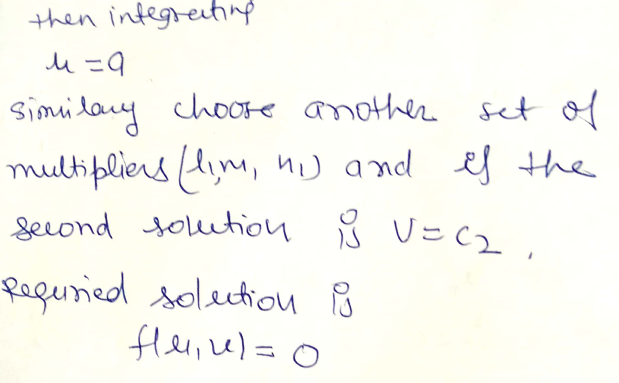 then integrating
u = a
similary choose another set of
multipliers (l₁, m₁ n₁) and if the
second solution is v = c₂ .
Requried solution is
f(u, v) = 0